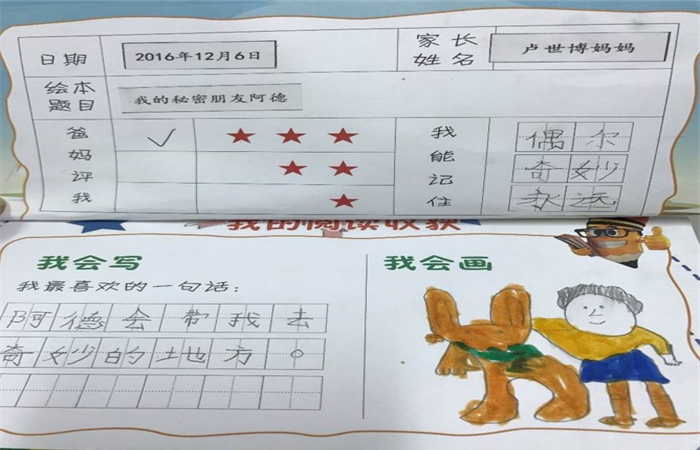 日期 2016年12月6日 家长姓名 卢世博妈妈
绘本题目 我的秘密朋友阿德
爸妈评我 ✓ ★★★ 我能记住 偶尔
★★ 奇妙
★ 永远
我的阅读收获
我会写
我最喜欢的一句话：
阿德会带我去
奇妙的地方。
我会画